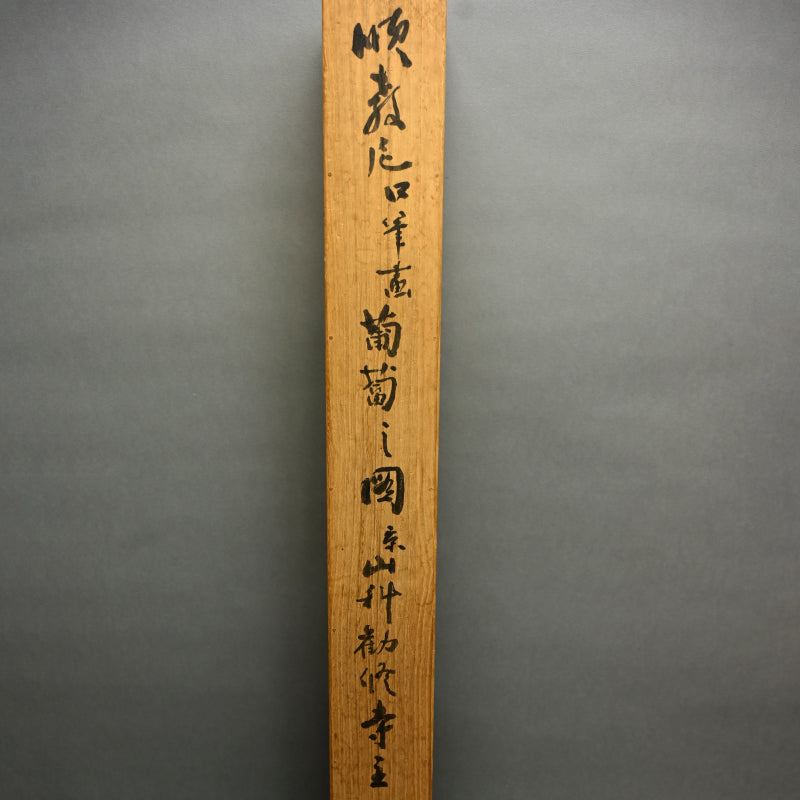 順教尼口筆画葡萄之図京山科勧修寺主